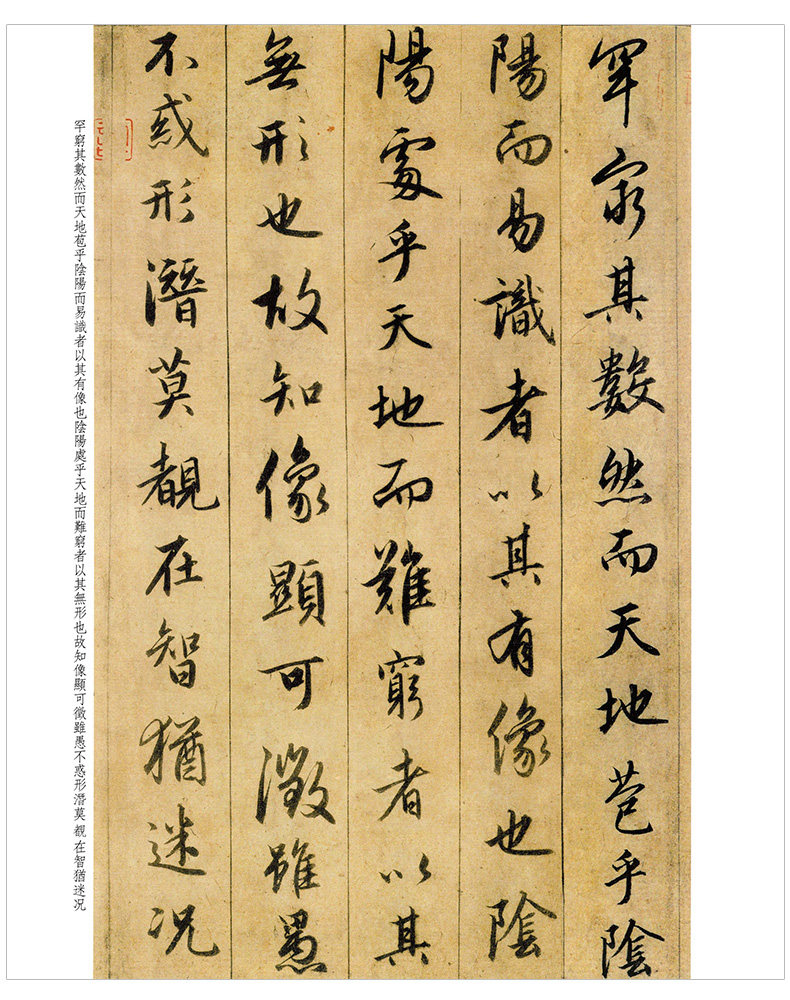 罕窮其數然而天地苞乎陰
陽而易識者以其有像也陰
陽處乎天地而難窮者以其
無形也故知像顯可徵雖愚
不惑形潛莫覩在智猶迷况
罕窮其數然而天地苞乎陰陽而易識者以其有像也陰陽處乎天地而難窮者以其無形也故知像顯可徵雖愚不惑形潛莫覩在智猶迷况